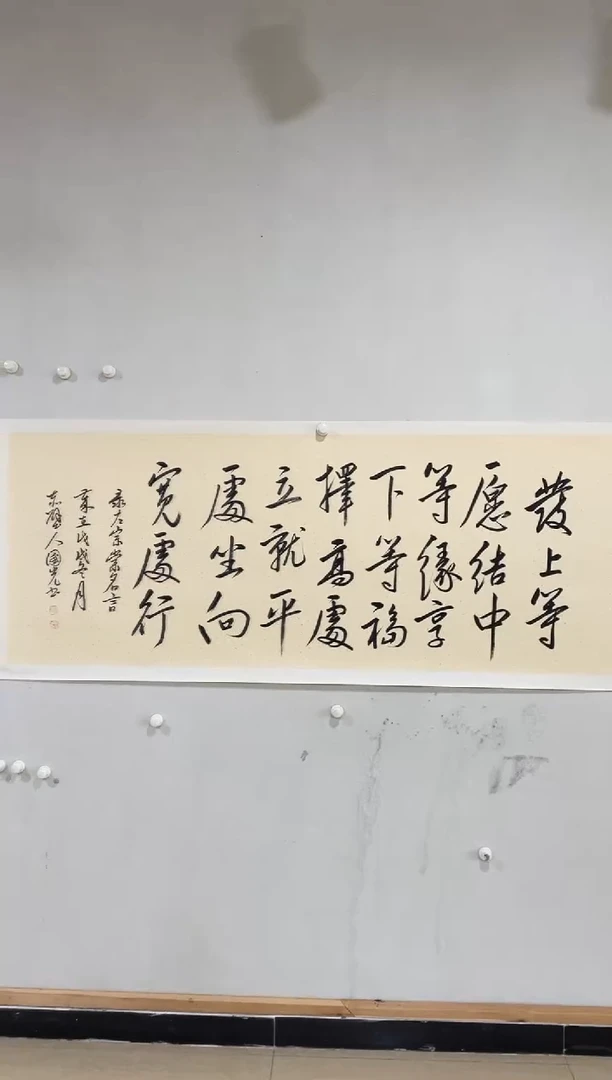 發上等
愿结中
等緣享
下等福
擇高處
立就平
處坐向
宽處行
录左宗棠名言
岁在戊戌冬月
人國光书